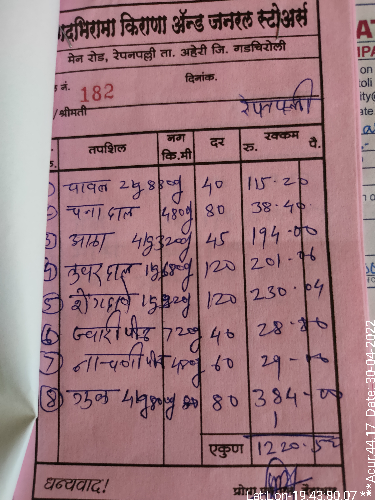 पद्मभिरामा किराणा ॲन्ड जनरल स्टोअर्स
मेन रोड, रेपनपल्ली ता. अहेरी जि. गडचिरोली
नं. 182 दिनांक.
/श्रीमती रेपनपल्ली
तपशिल नग कि.मी दर रक्कम रु. पै.
चावल 2kg 880g 40 115.20
2 चना दाल 480g 80 38.40
3 आटा 4kg 320g 45 194-00
4 तुवर दाल 1kg 680g 120 201.06
5 शेंगदाने 1kg 920g 120 230.04
6 ज्वारी पीठ 720g 40 28.80
7 नाचणी पीठ 480g 60 29-00
8 गुळ 4kg 80 384-00
एकुण 1220.50
धन्यवाद!
Lat Lon-19.43,80.07 **Acur.44.17 Date: 30-04-2022